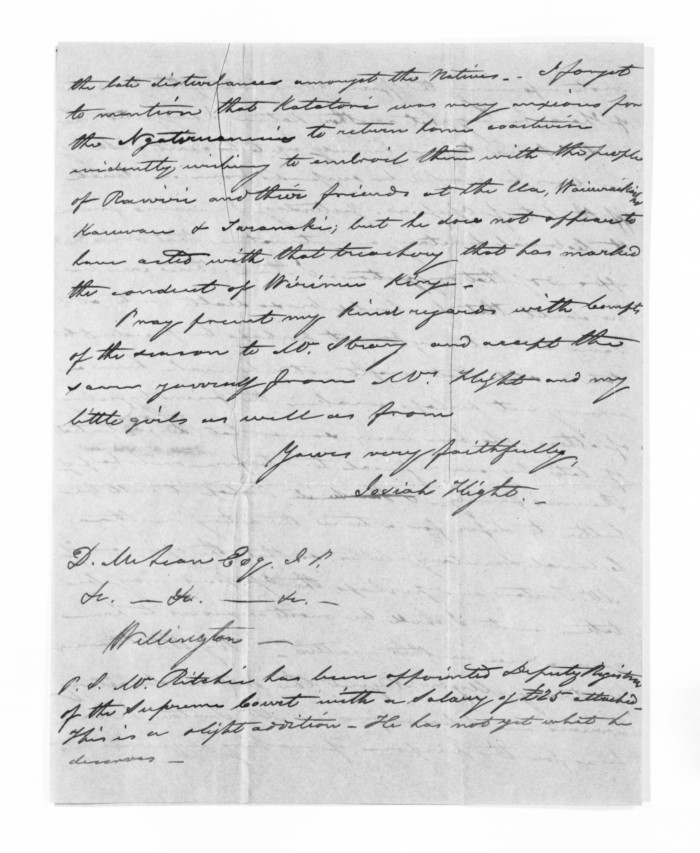 the late disturbances amongst the Natives - - I forget
to mention that Katatori was very anxious for
the Ngatiruanuis to return home coastwise
evidently wishing to embroil them with the people
of Rawiri and their friends at the Ua, Waimate
Kauwau & Taranaki; but he does not appear to
have acted with that treachery that has marked
the conduct of Wiremu King -
Pray present my kind regards with Compts
of the season to Mr. Strang and accept the
same yourself from Mrs Flight and my
little girls as well as from
Yours very faithfully,
Josiah Flight. -
D. McLean Esq. J. P.
&c. — &c. — &c. -
Wellington —
P. S. Mr. Ritchie has been appointed Deputy Registrar
of the Supreme Court with a Salary of £25 attached -
This is a slight addition - He has not yet what he
deserves -